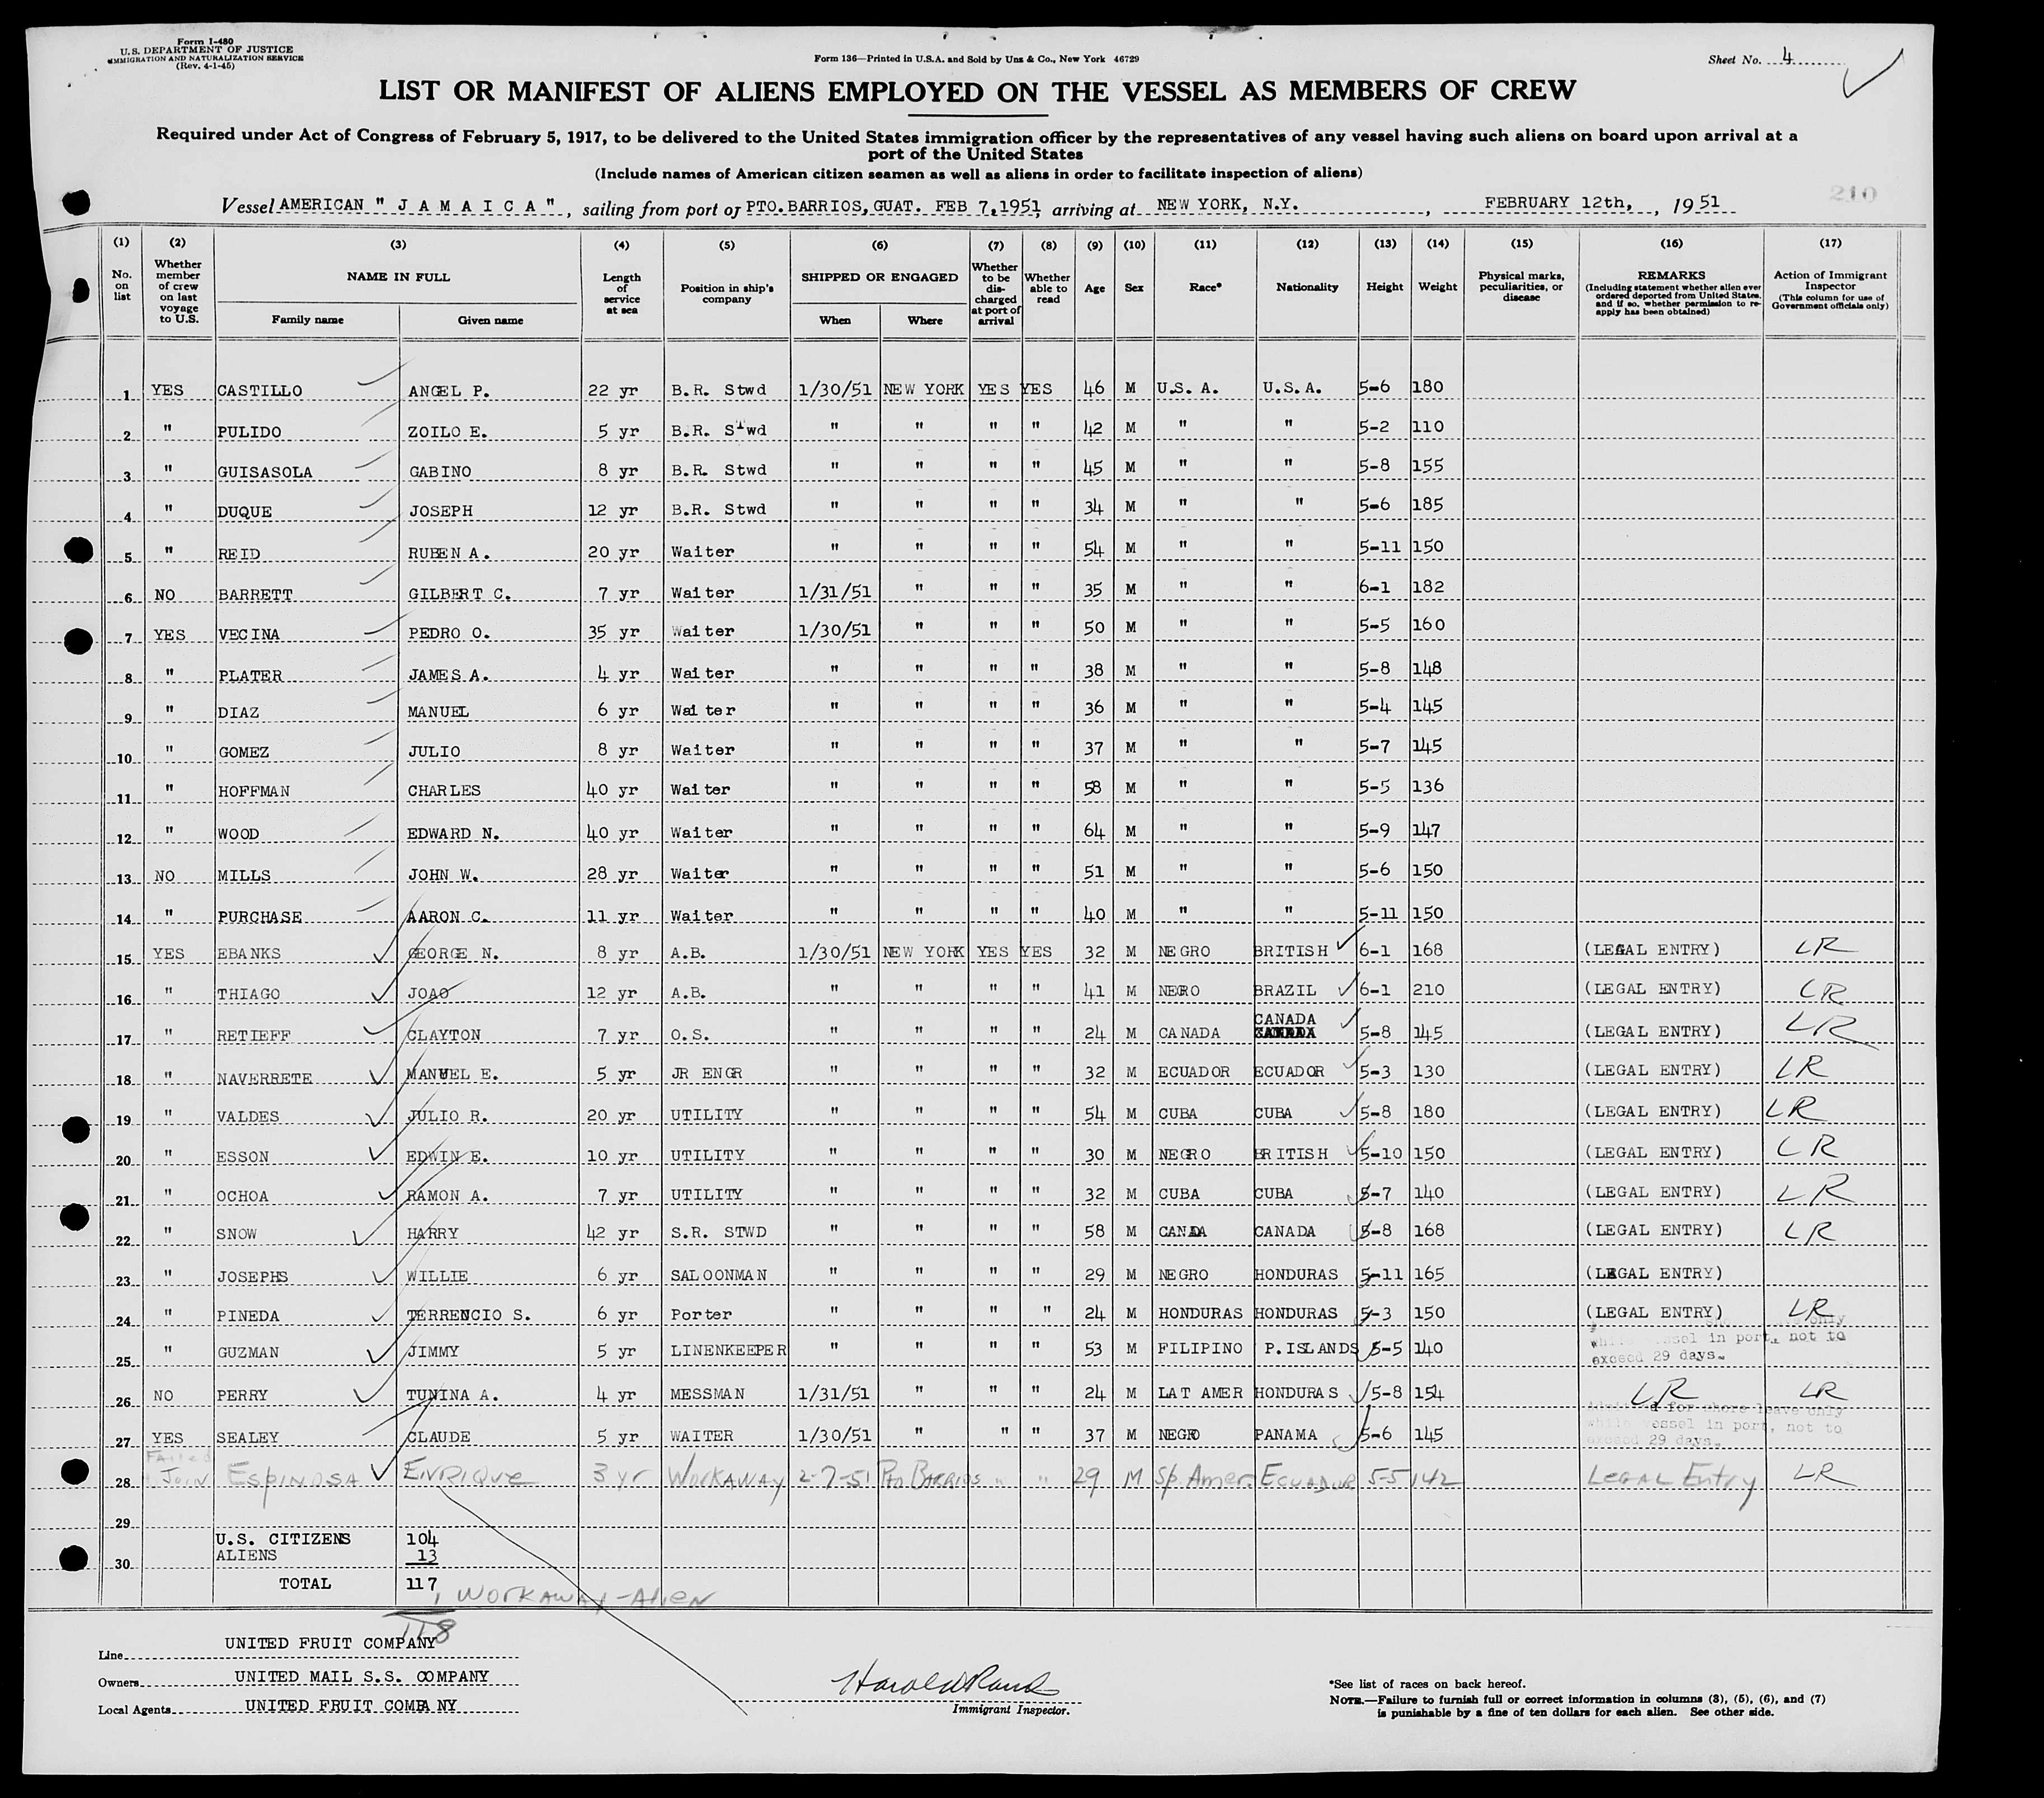 Form I-480
U.S. DEPARTMENT OF JUSTICE
IMMIGRATION AND NATURALIZATION SERVICE
(Rev. 4-1-45)
Form 136—Printed in U.S.A. and Sold by Unz & Co., New York 46729
Sheet No. 4
LIST OR MANIFEST OF ALIENS EMPLOYED ON THE VESSEL AS MEMBERS OF CREW
Required under Act of Congress of February 5, 1917, to be delivered to the United States immigration officer by the representatives of any vessel having such aliens on board upon arrival at a
port of the United States
(Include names of American citizen seamen as well as aliens in order to facilitate inspection of aliens)
210
Vessel AMERICAN " J A M A I C A ", sailing from port of PTO.BARRIOS, GUAT. FEB 7,1951, arriving at NEW YORK, N.Y., FEBRUARY 12th, , 1951
(1) (2) (3) (4) (5) (6) (7) (8) (9) (10) (11) (12) (13) (14) (15) (16) (17)
No. on list
Whether member of crew on last voyage to U.S.
NAME IN FULL
Family name
Given name
Length of service at sea
Position in ship's company
SHIPPED OR ENGAGED
When
Where
Whether to be discharged at port of arrival
Whether able to read
Age
Sex
Race*
Nationality
Height
Weight
Physical marks, peculiarities, or disease
REMARKS
(Including statement whether alien ever ordered deported from United States, and if so, whether permission to re-apply has been obtained)
Action of Immigrant Inspector
(This column for use of Government officials only)
1 YES CASTILLO ANGEL P. 22 yr B.R. Stwd 1/30/51 NEW YORK YES YES 46 M U.S.A. U.S.A. 5-6 180
2 " PULIDO ZOILO E. 5 yr B.R. Stwd " " " " 42 M " " 5-2 110
3 " GUISASOLA GABINO 8 yr B.R. Stwd " " " " 45 M " " 5-8 155
4 " DUQUE JOSEPH 12 yr B.R. Stwd " " " " 34 M " " 5-6 185
5 " REID RUBEN A. 20 yr Waiter " " " " 54 M " " 5-11 150
6 NO BARRETT GILBERT C. 7 yr Waiter 1/31/51 " " " 35 M " " 6-1 182
7 YES VECINA PEDRO O. 35 yr Waiter 1/30/51 " " " 50 M " " 5-5 160
8 " PLATER JAMES A. 4 yr Waiter " " " " 38 M " " 5-8 148
9 " DIAZ MANUEL 6 yr Waiter " " " " 36 M " " 5-4 145
10 " GOMEZ JULIO 8 yr Waiter " " " " 37 M " " 5-7 145
11 " HOFFMAN CHARLES 40 yr Waiter " " " " 58 M " " 5-5 136
12 " WOOD EDWARD N. 40 yr Waiter " " " " 64 M " " 5-9 147
13 NO MILLS JOHN W. 28 yr Waiter " " " " 51 M " " 5-6 150
14 " PURCHASE AARON C. 11 yr Waiter " " " " 40 M " " 5-11 150
15 YES EBANKS GEORGE N. 8 yr A.B. 1/30/51 NEW YORK YES YES 32 M NEGRO BRITISH 6-1 168 (LEGAL ENTRY) LR
16 " THIAGO JOAO 12 yr A.B. " " " " 41 M NEGRO BRAZIL 6-1 210 (LEGAL ENTRY) LR
17 " RETIEFF CLAYTON 7 yr O.S. " " " " 24 M CANADA CANADA 5-8 145 (LEGAL ENTRY) LR
18 " NAVERRETE MANUEL E. 5 yr JR ENGR " " " " 32 M ECUADOR ECUADOR 5-3 130 (LEGAL ENTRY) LR
19 " VALDES JULIO R. 20 yr UTILITY " " " " 54 M CUBA CUBA 5-8 180 (LEGAL ENTRY) LR
20 " ESSON EDWIN E. 10 yr UTILITY " " " " 30 M NEGRO BRITISH 5-10 150 (LEGAL ENTRY) LR
21 " OCHOA RAMON A. 7 yr UTILITY " " " " 32 M CUBA CUBA 5-7 140 (LEGAL ENTRY) LR
22 " SNOW HARRY 42 yr S.R. STWD " " " " 58 M CANADA CANADA 5-8 168 (LEGAL ENTRY) LR
23 " JOSEPHS WILLIE 6 yr SALOONMAN " " " " 29 M NEGRO HONDURAS 5-11 165 (LEGAL ENTRY)
24 " PINEDA TERRENCIO S. 6 yr Porter " " " " 24 M HONDURAS HONDURAS 5-3 150 (LEGAL ENTRY) LR
25 " GUZMAN JIMMY 5 yr LINENKEEPER " " " " 53 M FILIPINO P.ISLANDS 5-5 140 only while vessel in port, not to exceed 29 days.
26 NO PERRY TUNINA A. 4 yr MESSMAN 1/31/51 " " " 24 M LAT AMER HONDURAS 5-8 154 LR LR
27 YES SEALEY CLAUDE 5 yr WAITER 1/30/51 " " " 37 M NEGRO PANAMA 5-6 145 Admitted for shore leave only while vessel in port, not to exceed 29 days.
28 Failed Join ESPINOSA ENRIQUE 3 yr WORKAWAY 2-7-51 Pto BARRIOS " " 29 M Sp. Amer. ECUADOR 5-5 142 LEGAL Entry LR
29
U.S. CITIZENS 104
30 ALIENS 13
TOTAL 117
1 WORKAWAY-Alien
118
Line UNITED FRUIT COMPANY
Owners UNITED MAIL S.S. COMPANY
Local Agents UNITED FRUIT COMPANY
Immigrant Inspector.
*See list of races on back hereof.
NOTE.—Failure to furnish full or correct information in columns (3), (5), (6), and (7)
is punishable by a fine of ten dollars for each alien. See other side.